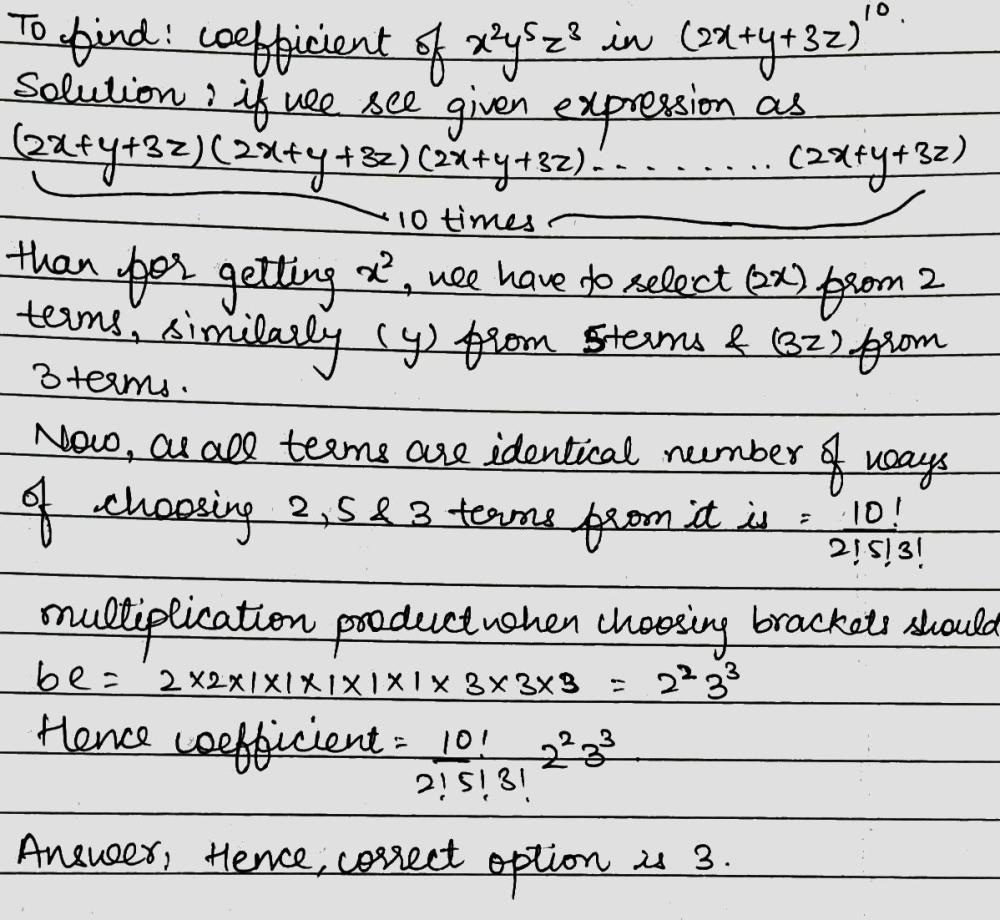 To find: coefficient of x²y⁵z³ in (2x+y+3z)¹⁰.
Solution: if we see given expression as
(2x+y+3z)(2x+y+3z)(2x+y+3z)......... (2x+y+3z)
10 times
than for getting x², we have to select (2x) from 2
terms, similarly (y) from 5 terms & (3z) from
3 terms.
Now, as all terms are identical number of ways
of choosing 2, 5 & 3 terms from it is = 10!/2!5!3!
multiplication product when choosing brackets should
be = 2×2×1×1×1×1×1×3×3×3 = 2²3³
Hence coefficient = 10!/2!5!3! 2²3³
Answer, Hence, correct option is 3.